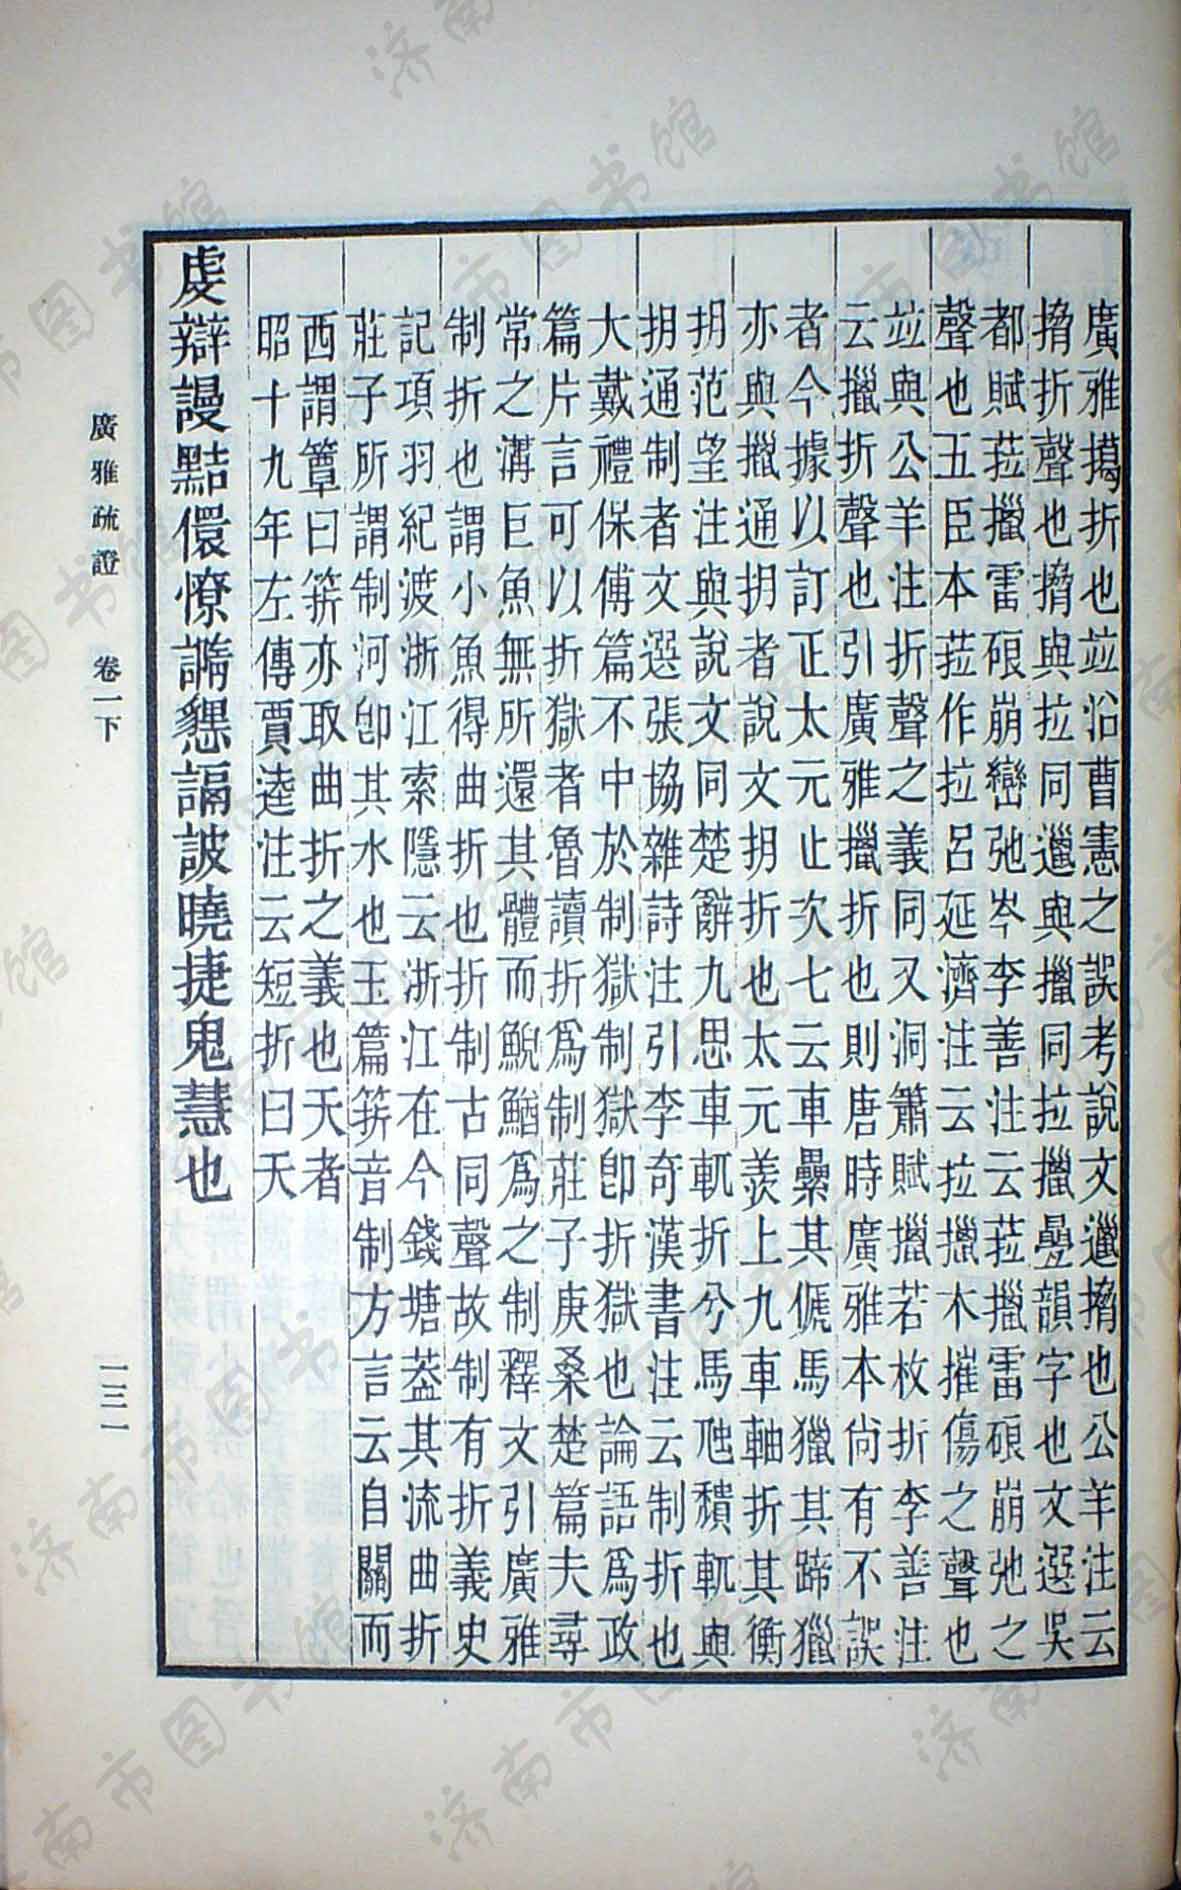 廣雅搚折也竝沿曹憲之誤考說文邋搚也公羊注云
搚折聲也搚與拉同邋與擸同拉擸疊韻字也文選吳
都賦菈擸雷硠崩巒弛岑李善注云菈擸雷硠崩弛之
聲也五臣本菈作拉呂延濟注云拉擸木摧傷之聲也
竝與公羊注折聲之義同又洞簫賦擸若枚折李善注
云擸折聲也引廣雅擸折也則唐時廣雅本尙有不誤
者今據以訂正太元止次七云車纍其俿馬獵其蹄獵
亦與擸通抈者說文抈折也太元羨上九車軸折其衡
抈范望注與說文同楚辭九思車軏折兮馬虺穨軏與
抈通制者文選張協雜詩注引李奇漢書注云制折也
大戴禮保傅篇不中於制獄制獄卽折獄也論語爲政
篇片言可以折獄者魯讀折爲制莊子庚桑楚篇夫尋
常之溝巨魚無所還其體而鯢鰌爲之制釋文引廣雅
制折也謂小魚得曲折也折制古同聲故制有折義史
記項羽紀渡浙江索隱云浙江在今錢塘葢其流曲折
莊子所謂制河卽其水也玉篇䇷音制方言云自關而
西謂簟曰䇷亦取曲折之義也夭者
昭十九年左傳賈逵注云短折曰夭
虔辯謾黠儇憭譎懇謳詖曉捷鬼慧也
廣雅疏證 卷一下
一三一
济南市图书馆